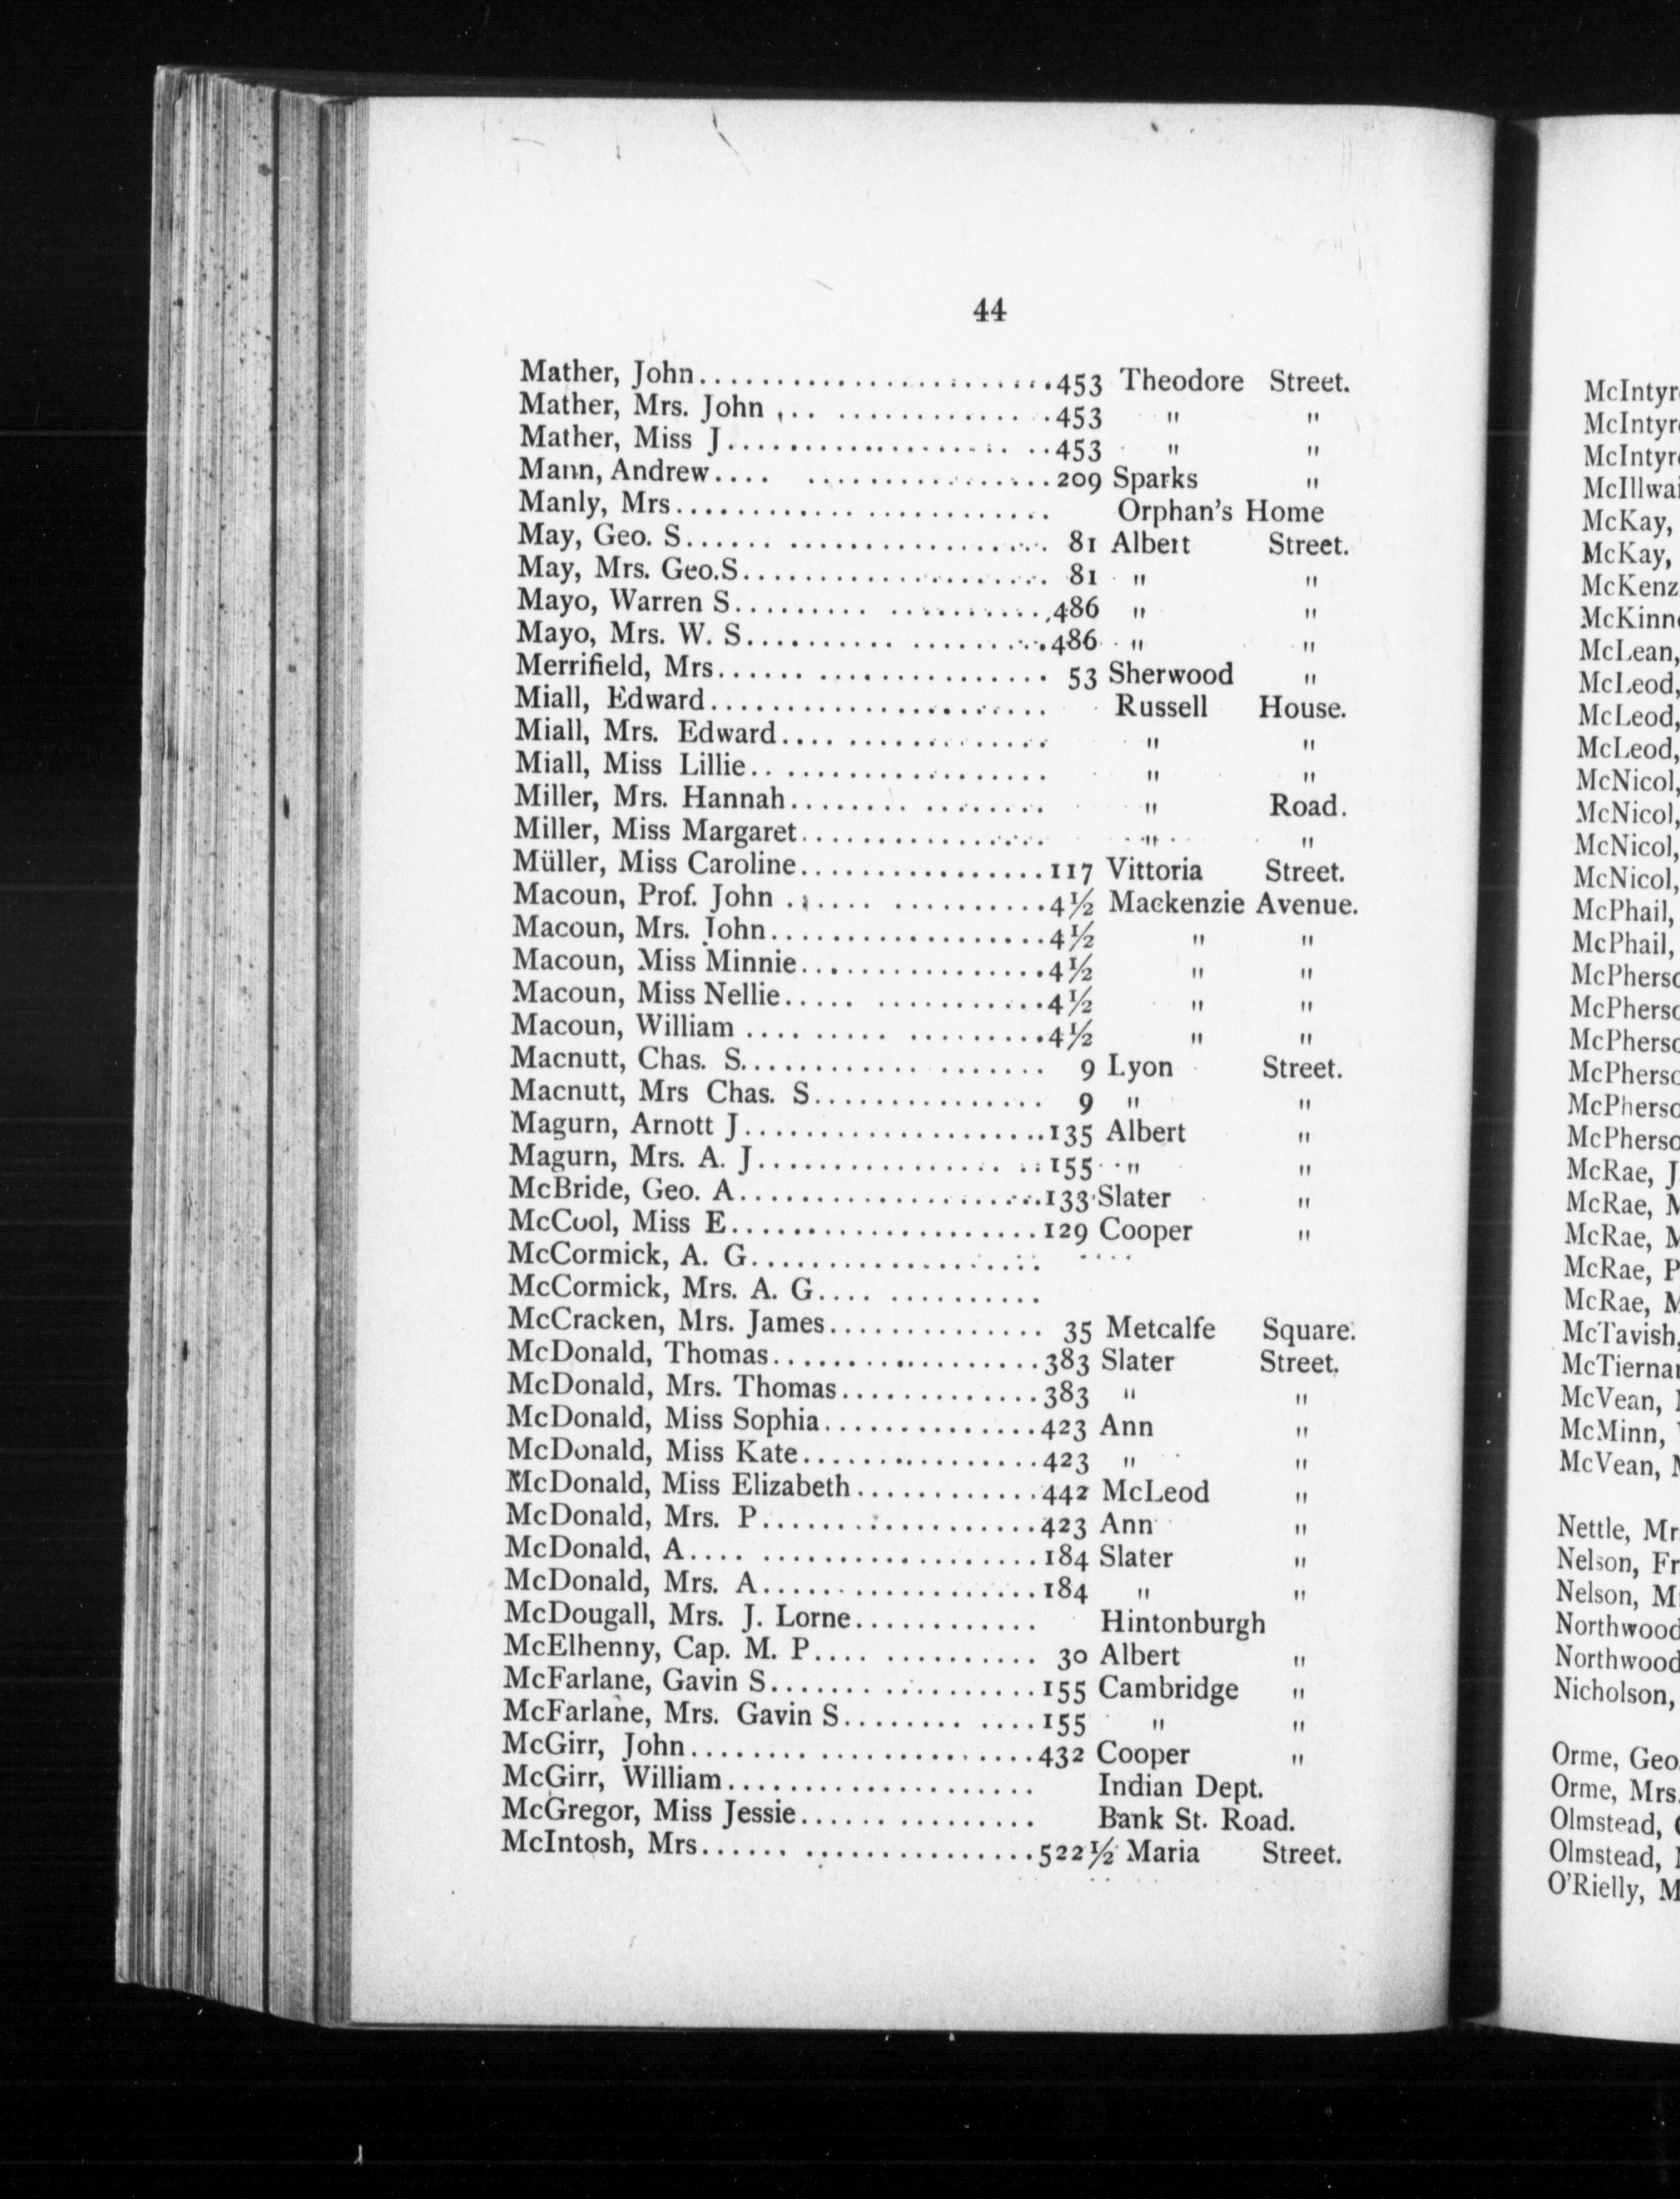 44
Mather, John........................453 Theodore Street.
Mather, Mrs. John ,.. ...............453 " "
Mather, Miss J.......................453 " "
Mann, Andrew.... ................209 Sparks "
Manly, Mrs........................ Orphan's Home
May, Geo. S...... .................. 81 Albert Street.
May, Mrs. Geo.S.................... 81 " "
Mayo, Warren S......... ..........486 " "
Mayo, Mrs. W. S.......... .........486 " "
Merrifield, Mrs...... ............... 53 Sherwood "
Miall, Edward...................... Russell House.
Miall, Mrs. Edward.... ............. " "
Miall, Miss Lillie.. ................. " "
Miller, Mrs. Hannah........ ........ " Road.
Miller, Miss Margaret................ " "
Müller, Miss Caroline................117 Vittoria Street.
Macoun, Prof. John ...... ..........4½ Mackenzie Avenue.
Macoun, Mrs. John..................4½ " "
Macoun, Miss Minnie................4½ " "
Macoun, Miss Nellie..... ...........4½ " "
Macoun, William .......... .........4½ " "
Macnutt, Chas. S................... 9 Lyon Street.
Macnutt, Mrs Chas. S............... 9 " "
Magurn, Arnott J....................135 Albert "
Magurn, Mrs. A. J................ ..155 " "
McBride, Geo. A....................133 Slater "
McCool, Miss E....................129 Cooper "
McCormick, A. G................... ....
McCormick, Mrs. A. G.... ..........
McCracken, Mrs. James.............. 35 Metcalfe Square.
McDonald, Thomas.................383 Slater Street.
McDonald, Mrs. Thomas.............383 " "
McDonald, Miss Sophia..............423 Ann "
McDonald, Miss Kate...............423 " "
McDonald, Miss Elizabeth............442 McLeod "
McDonald, Mrs. P..................423 Ann "
McDonald, A.... ..................184 Slater "
McDonald, Mrs. A..................184 " "
McDougall, Mrs. J. Lorne............ Hintonburgh
McElhenny, Cap. M. P.... .......... 30 Albert "
McFarlane, Gavin S....... ..........155 Cambridge "
McFarlane, Mrs. Gavin S........ ....155 " "
McGirr, John........ ..............432 Cooper "
McGirr, William.................... Indian Dept.
McGregor, Miss Jessie............... Bank St. Road.
McIntosh, Mrs...... ...............522½ Maria Street.
McIntyr
McIntyr
McIntyr
McIllwai
McKay,
McKay,
McKenz
McKinn
McLean,
McLeod,
McLeod,
McLeod,
McNicol,
McNicol,
McNicol,
McNicol,
McPhail,
McPhail,
McPherso
McPherso
McPherso
McPherso
McPherso
McPherso
McRae, J
McRae, M
McRae, M
McRae, P
McRae, M
McTavish,
McTierna
McVean,
McMinn,
McVean, M
Nettle, Mr
Nelson, Fr
Nelson, M
Northwood
Northwood
Nicholson,
Orme, Geo
Orme, Mrs.
Olmstead,
Olmstead,
O'Rielly, M